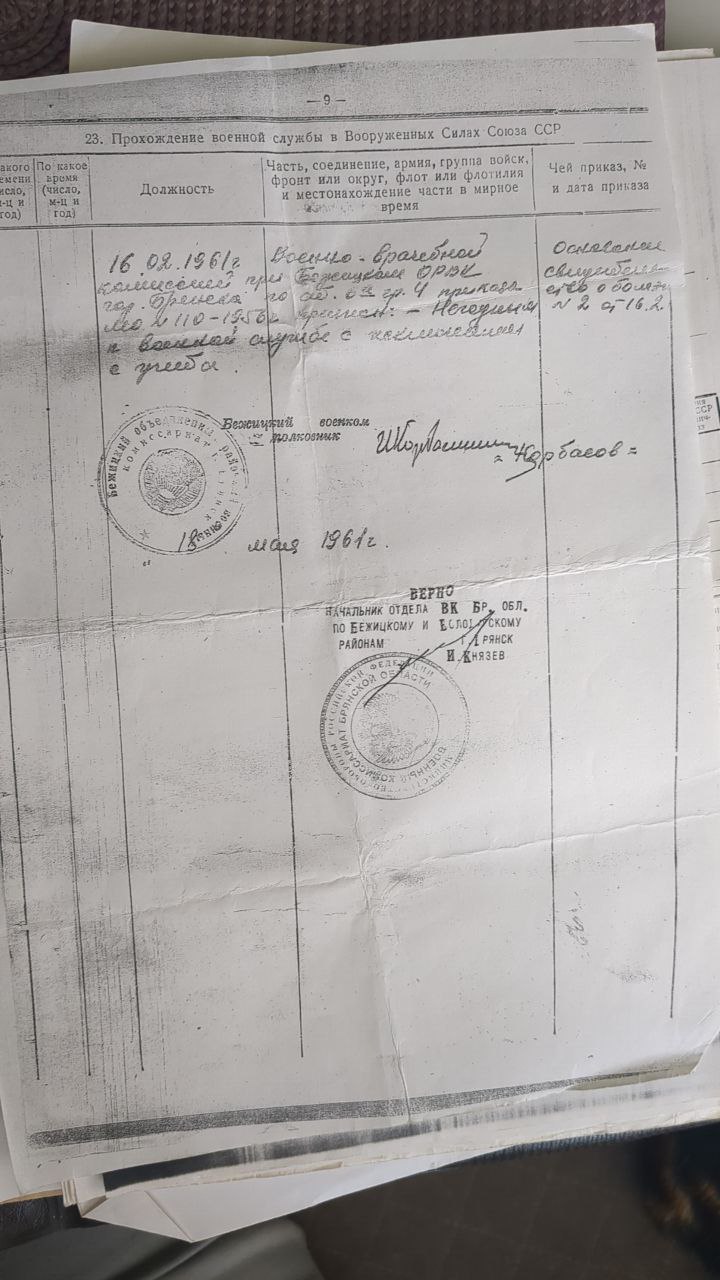 — 9 —
23. Прохождение военной службы в Вооруженных Силах Союза ССР
По какое время (число, м-ц и год)
Должность
Часть, соединение, армия, группа войск,
фронт или округ, флот или флотилия
и местонахождение части в мирное
время
Чей приказ, №
и дата приказа
16.02.1961г Военно-врачебной
комиссией при Бежицком ОРВК
гор. Брянска по ст. 6 гр. 4 приказа
МО № 110-1956г признан: - Негодным
к военной службе с исключением
с учета.
Основание
свидетель-
ство о болезн
№ 2 от 16.2.
Бежицкий военком
полковник
= Корбасов =
Бежицкий объединен. район. военный
комиссариат г. Брянск
" 18 " мая 1961г.
ВЕРНО
НАЧАЛЬНИК ОТДЕЛА ВК БР. ОБЛ.
ПО БЕЖИЦКОМУ И
РАЙОНАМ Г. БРЯНСК
И. КНЯЗЕВ
МИНИСТЕРСТВО ОБОРОНЫ РОССИЙСКОЙ ФЕДЕРАЦИИ
ВОЕННЫЙ КОМИССАРИАТ БРЯНСКОЙ ОБЛАСТИ